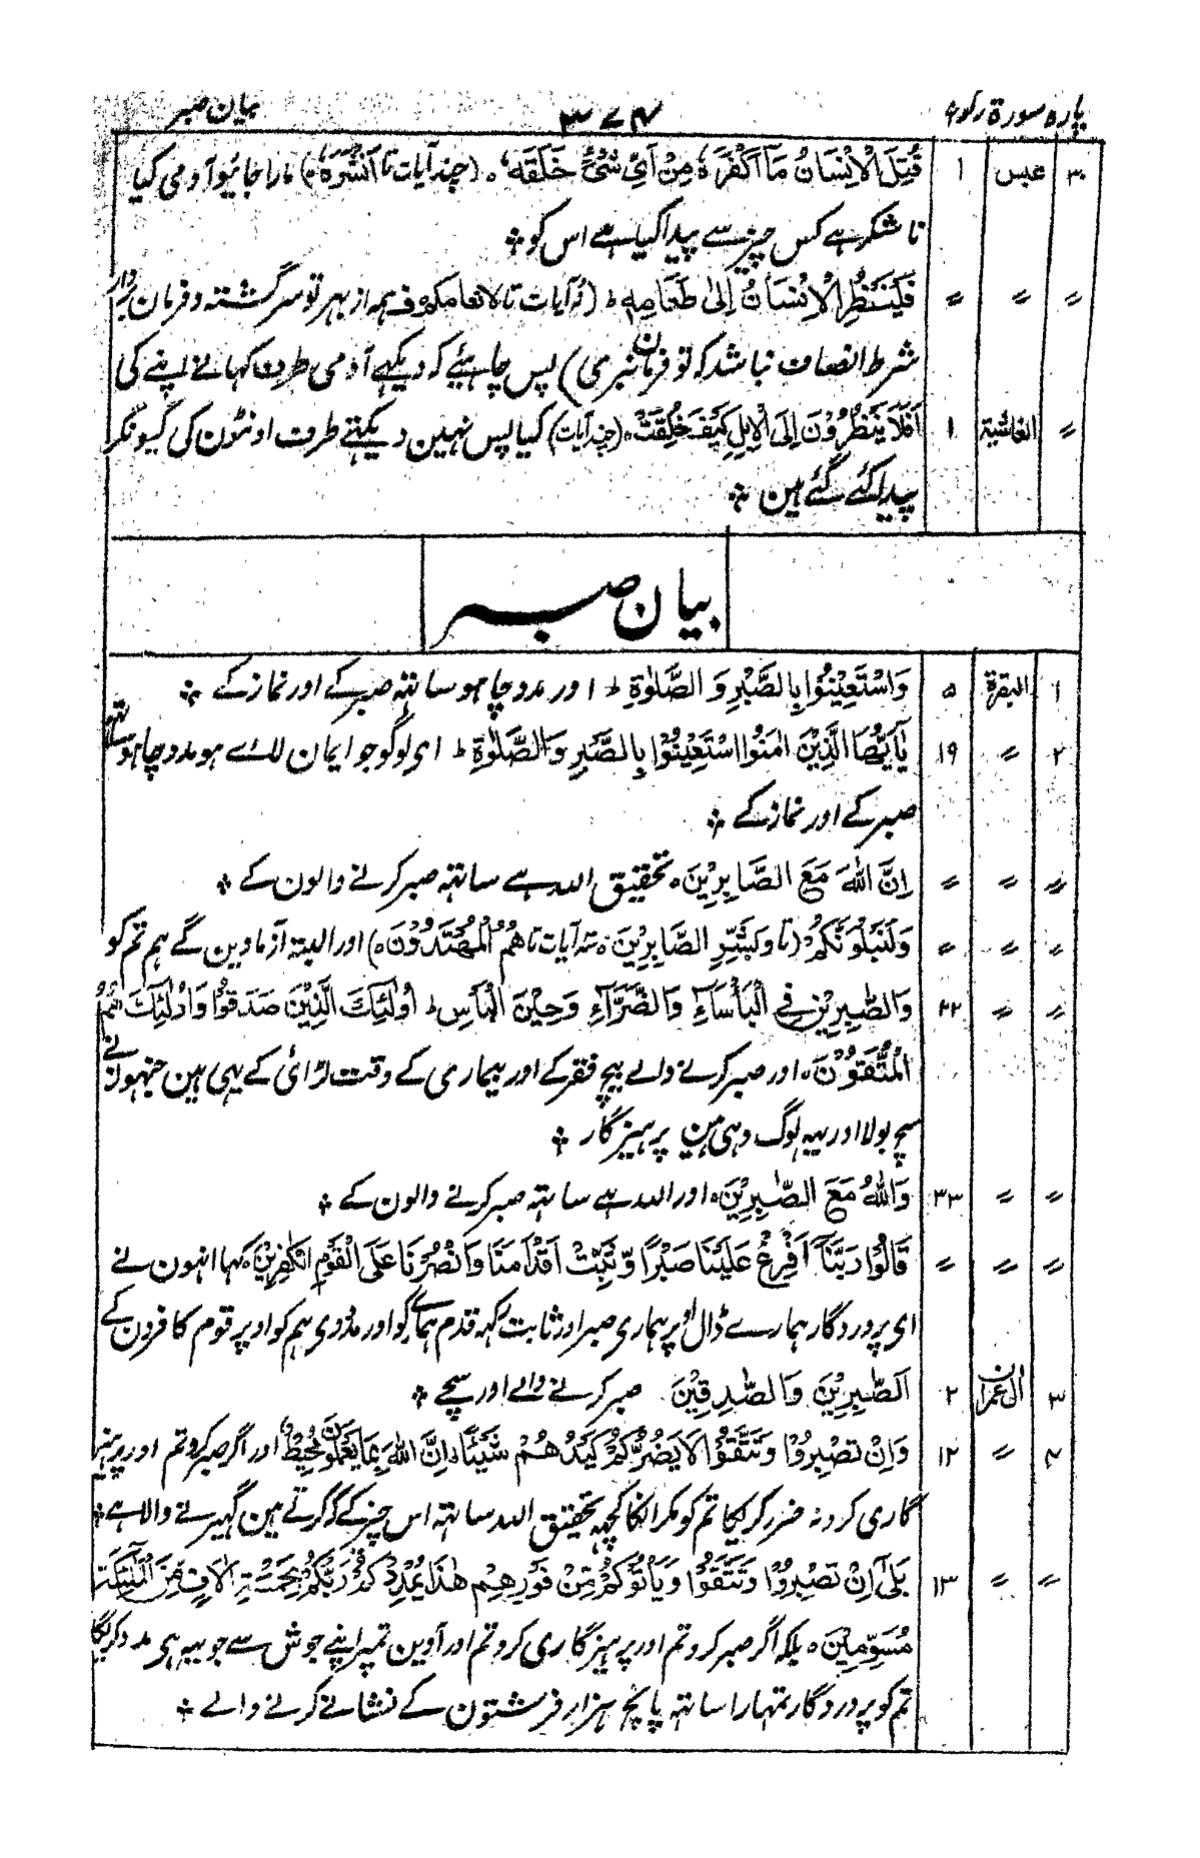 پارہ سورۃ رکوع ۳۷۴ بیان صبر
۳۰ عبس ۱ قُتِلَ الْاِنْسَانُ مَآ اَكْفَرَهٗ ؕ مِنْ اَیِّ شَیْءٍ خَلَقَهٗ ؕ (چند آیات تا اَنْشَرَهٗ ؕ) مارا جائیو آدمی کیا
ناشکر ہے کس چیز سے پیدا کیا ہے اس کو ⁘
〃 〃 〃 فَلْیَنْظُرِ الْاِنْسَانُ اِلٰى طَعَامِهٖ ط (آیات تا لانعامکم ف ہمہ از بہر تو سرگشتہ و فرمان بردار
شرط انصاف نباشد کہ تو فرمان نبری) پس چاہیئے کہ دیکھے آدمی طرف کہانے اپنے کی
〃 الغاشیۃ ۱ اَفَلَا یَنْظُرُوْنَ اِلَى الْاِبِلِ كَیْفَ خُلِقَتْ ؕ (چند آیات) کیا پس نہین دیکہتے طرف اونٹون کی کیونکر
پیدا کئے گئے ہین ⁘
بیان صبر
۱ البقرۃ ۵ وَاسْتَعِیْنُوْا بِالصَّبْرِ وَ الصَّلٰوةِ ط اور مدد چاہو ساتہہ صبر کے اور نماز کے ⁘
۲ 〃 ۱۹ یٰۤاَیُّهَا الَّذِیْنَ اٰمَنُوا اسْتَعِیْنُوْا بِالصَّبْرِ وَ الصَّلٰوةِ ط ای لوگو جو ایمان لائے ہو مدد چاہو ساتہہ
صبر کے اور نماز کے ⁘
〃 〃 〃 اِنَّ اللّٰهَ مَعَ الصَّابِرِیْنَ ہ تحقیق اللہ ہے ساتہہ صبر کرنے والون کے ⁘
〃 〃 〃 وَلَنَبْلُوَنَّكُمْ (تا وَبَشِّرِ الصَّابِرِیْنَ ہ سہ آیات تا هُمُ الْمُهْتَدُوْنَ ہ) اور البتہ آزماوین گے ہم تم کو
〃 〃 ۲۲ وَالصّٰبِرِیْنَ فِی الْبَاْسَآءِ وَالضَّرَّآءِ وَحِیْنَ الْبَاْسِ ط اُولٰٓئِكَ الَّذِیْنَ صَدَقُوْا وَاُولٰٓئِكَ هُمُ
الْمُتَّقُوْنَ ہ اور صبر کرنے والے بیچ فقر کے اور بیماری کے وقت لڑائی کے یہی ہین جنہون نے
سچ بولا اور یہہ لوگ وہی ہین پرہیزگار ⁘
〃 〃 ۳۳ وَاللّٰهُ مَعَ الصّٰبِرِیْنَ ہ اور اللہ ہے ساتہہ صبر کرنے والون کے ⁘
〃 〃 〃 قَالُوْا رَبَّنَآ اَفْرِغْ عَلَیْنَا صَبْرًا وَّ ثَبِّتْ اَقْدَامَنَا وَانْصُرْنَا عَلَى الْقَوْمِ الْكٰفِرِیْنَ ہ کہا انہون نے
ای پروردگار ہمارے ڈال اوپر ہماری صبر اور ثابت رکہہ قدم ہمارے کو اور مدد دی ہم کو اوپر قوم کافرون کے
۳ اٰل عمران ۲ اَلصّٰبِرِیْنَ وَالصّٰدِقِیْنَ صبر کرنے والے اور سچے ⁘
۴ 〃 ۱۲ وَاِنْ تَصْبِرُوْا وَتَتَّقُوْا لَا یَضُرُّكُمْ كَیْدُهُمْ شَیْئًا ؕ اِنَّ اللّٰهَ بِمَا یَعْمَلُوْنَ مُحِیْطٌ اور اگر صبر کرو تم اور پرہیز
گاری کرو نہ ضرر کریگا تم کو مکر انکا کچہہ تحقیق اللہ ساتہہ اس چیز کے کہ کرتے ہین گہیرنے والا ہے ⁘
〃 〃 ۱۳ بَلٰٓى اِنْ تَصْبِرُوْا وَتَتَّقُوْا وَیَاْتُوْكُمْ مِّنْ فَوْرِهِمْ هٰذَا یُمْدِدْكُمْ رَبُّكُمْ بِخَمْسَةِ اٰلَافٍ مِّنَ الْمَلٰٓئِكَةِ
مُسَوِّمِیْنَ ہ بلکہ اگر صبر کرو تم اور پرہیزگاری کرو تم اور آوین تمپر اپنے جوش سے جو یہہ ہی مدد کریگا
تم کو پروردگار تمہارا ساتہہ پانچ ہزار فرشتون کے نشانے کرنے والے ⁘